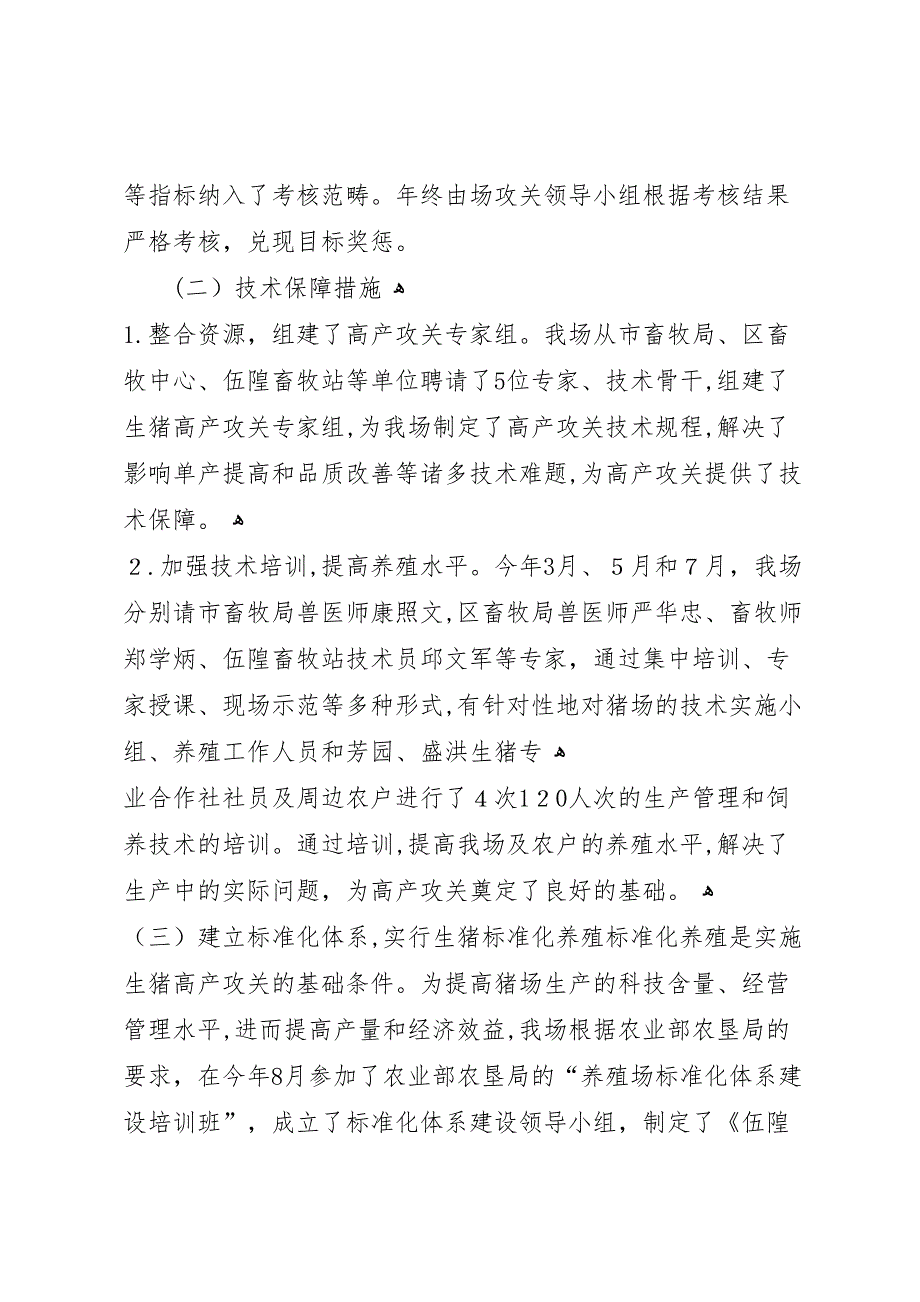 等指标纳入了考核范畴。年终由场攻关领导小组根据考核结果
严格考核，兑现目标奖惩。
(二）技术保障措施 ﻫ
1.整合资源，组建了高产攻关专家组。我场从市畜牧局、区畜
牧中心、伍隍畜牧站等单位聘请了5位专家、技术骨干,组建了
生猪高产攻关专家组,为我场制定了高产攻关技术规程,解决了
影响单产提高和品质改善等诸多技术难题,为高产攻关提供了技
术保障。 ﻫ
２.加强技术培训,提高养殖水平。今年3月、５月和７月，我场
分别请市畜牧局兽医师康照文,区畜牧局兽医师严华忠、畜牧师
郑学炳、伍隍畜牧站技术员邱文军等专家，通过集中培训、专
家授课、现场示范等多种形式,有针对性地对猪场的技术实施小
组、养殖工作人员和芳园、盛洪生猪专 ﻫ
业合作社社员及周边农户进行了４次1２0人次的生产管理和饲
养技术的培训。通过培训,提高我场及农户的养殖水平,解决了
生产中的实际问题，为高产攻关奠定了良好的基础。 ﻫ
（三）建立标准化体系,实行生猪标准化养殖标准化养殖是实施
生猪高产攻关的基础条件。为提高猪场生产的科技含量、经营
管理水平,进而提高产量和经济效益,我场根据农业部农垦局的
要求，在今年8月参加了农业部农垦局的“养殖场标准化体系建
设培训班”，成立了标准化体系建设领导小组，制定了《伍隍